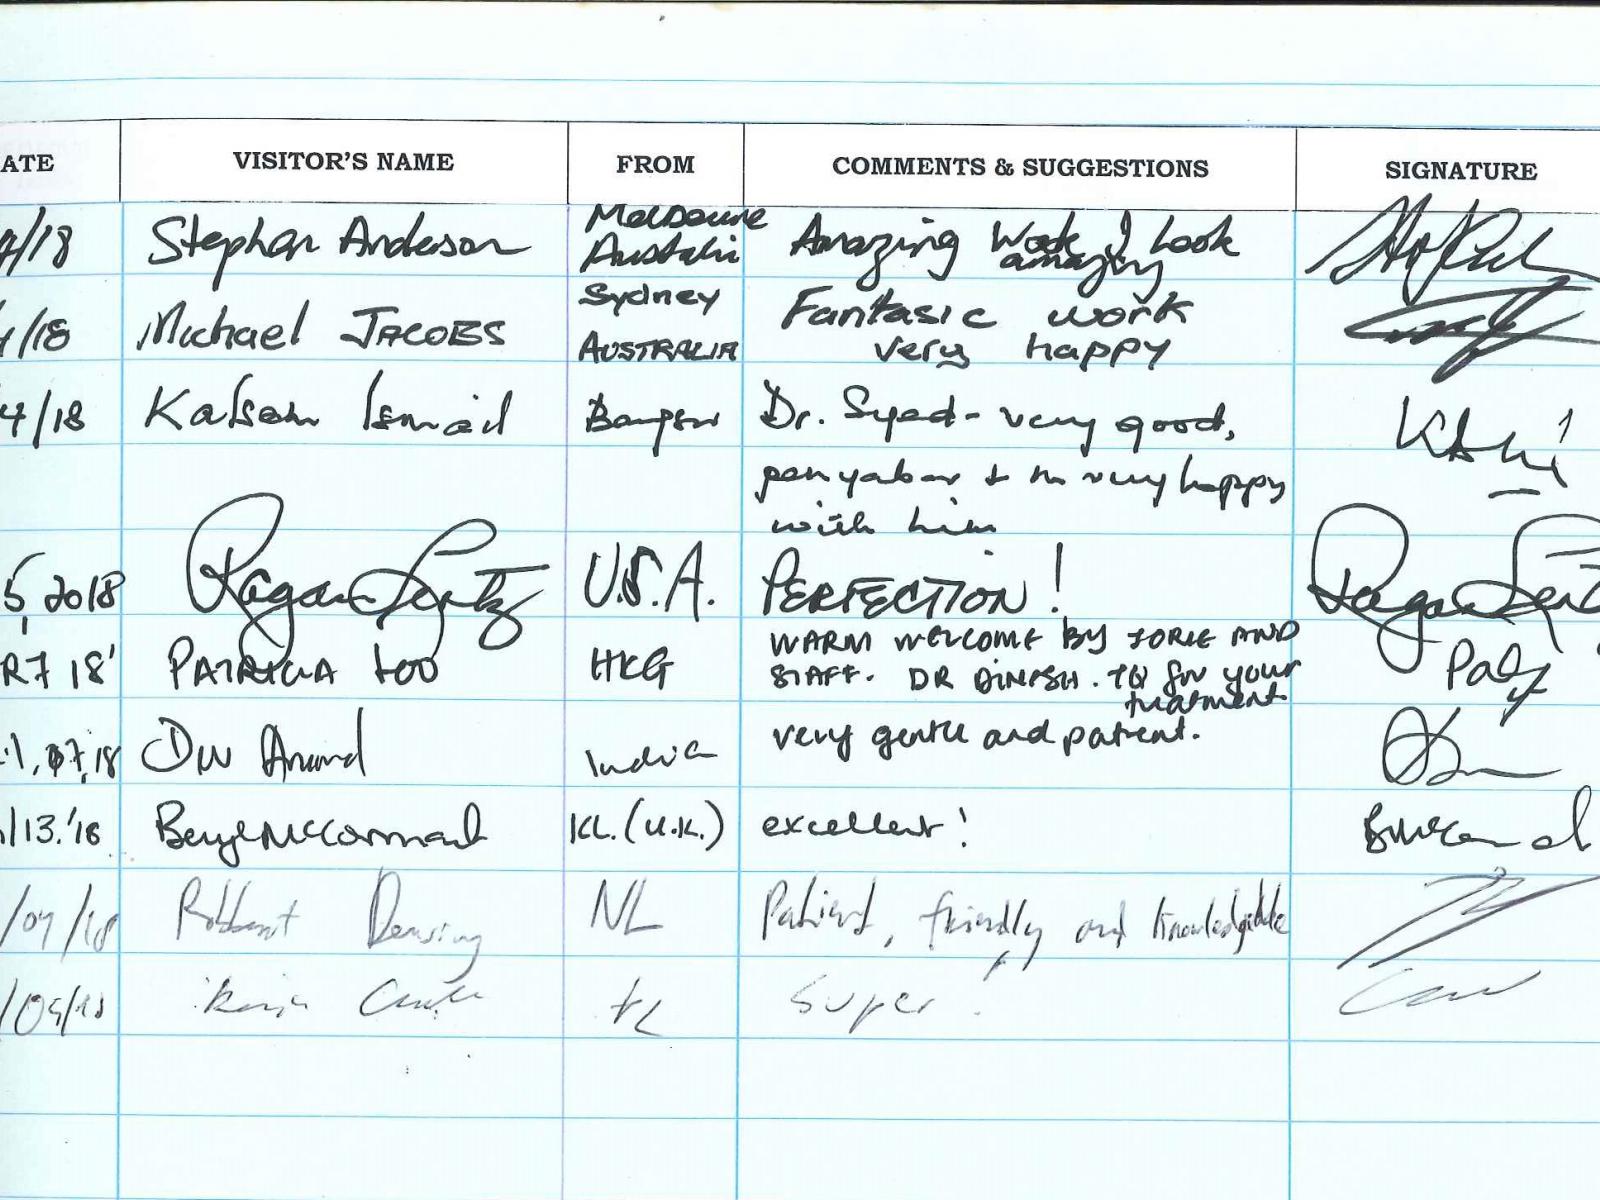 ATE VISITOR'S NAME FROM COMMENTS & SUGGESTIONS SIGNATURE
/18 Stephen Anderson Melbourne Australia Amazing Work I Look amazing
/18 Michael JACOBS Sydney AUSTRALIA Fantasic work
very happy
4/18 Kalsom Ismail Bangsar Dr. Syed - very good,
penyabar & I'm very happy
with him
5, 2018 Ragan U.S.A. PERFECTION!
R7 18' PATRICIA LOO HKG WARM WELCOME BY JORIE AND
STAFF. DR DINESH. TQ for your
treatment
07.18 Anand India very gentle and patient.
/13.'18 Beryl McCormack KL. (U.K.) excellent!
/18 NL Patient, friendly and knowledgable
KL Super!